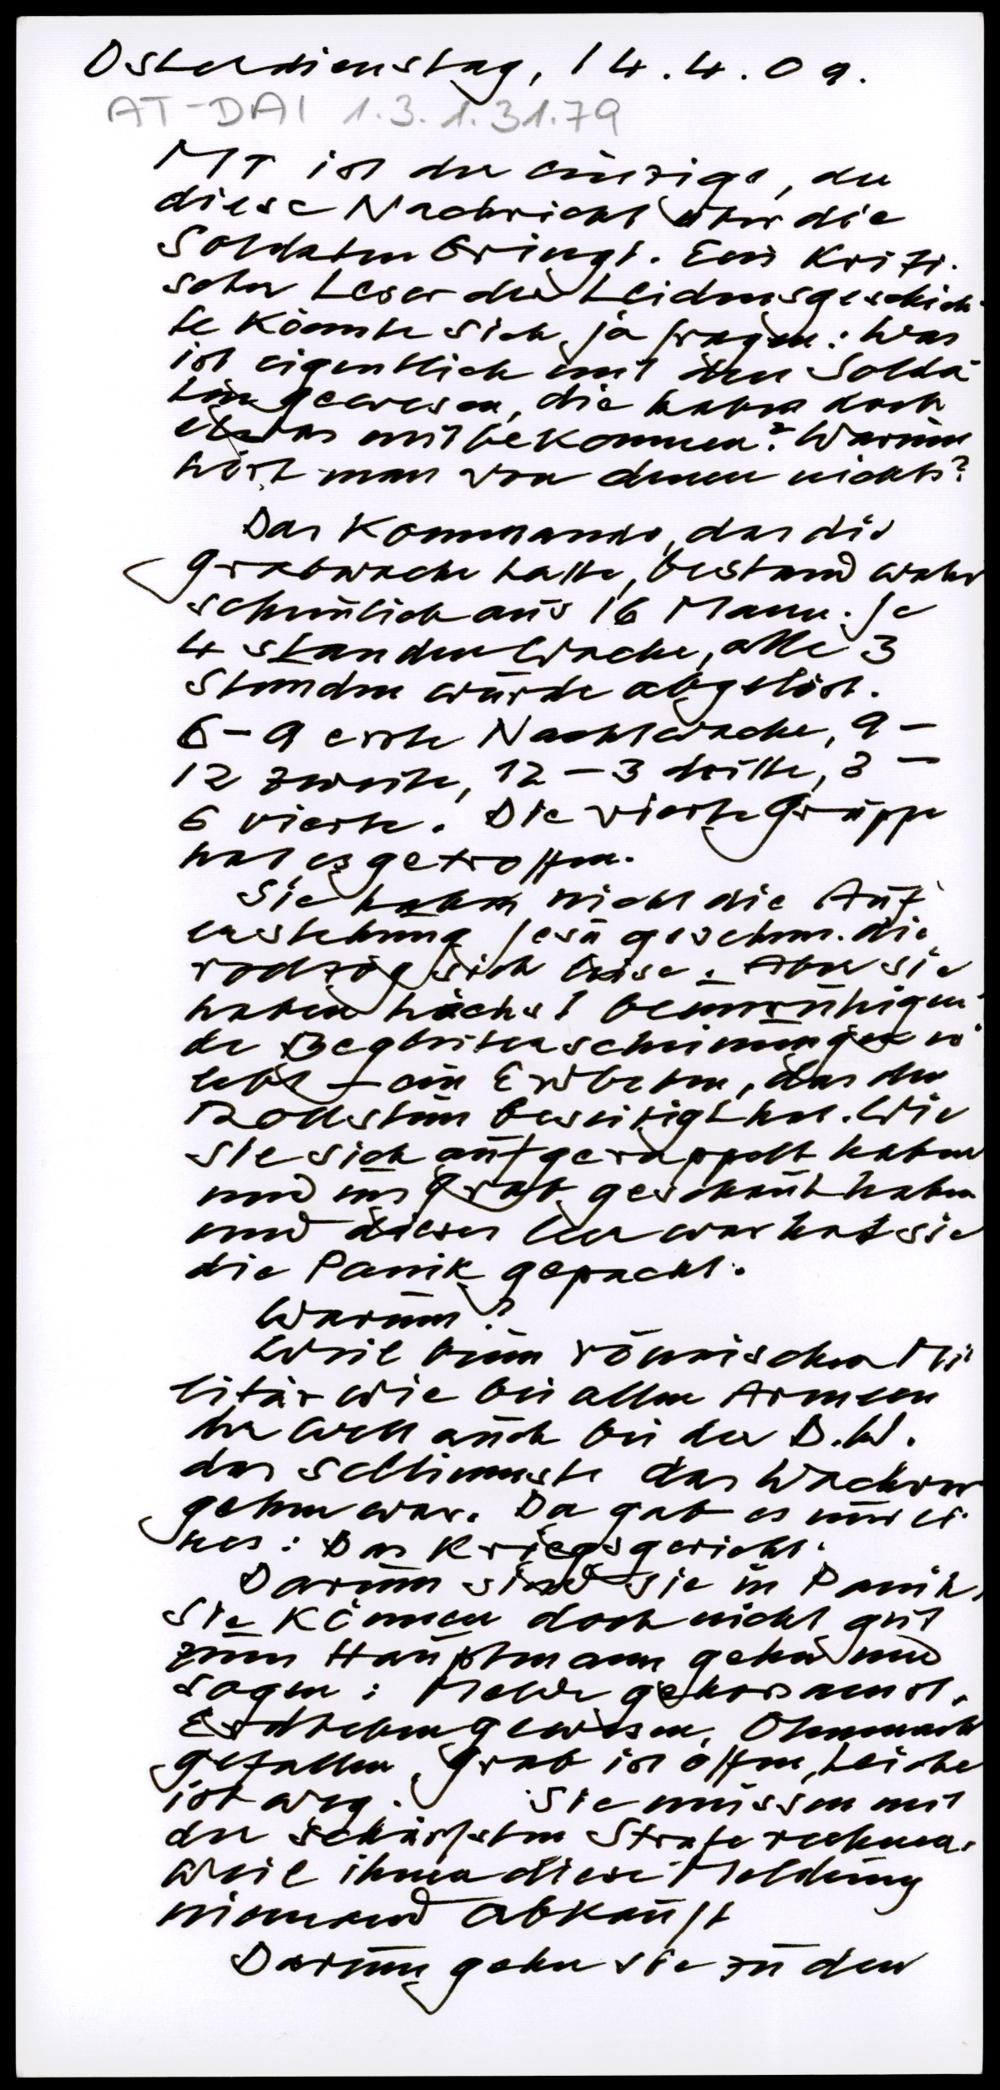 Osterdienstag, 14.4.09.
AT-DAI 1.3.1.31.79
MT ist der einzige, der
diese Nachricht über die
Soldaten bringt. Ein kriti-
scher Leser der Leidensgeschich-
te könnte sich ja fragen: Was
ist eigentlich mit den Solda
ten gewesen, die haben doch
etwas mitbekommen? Warum
hört man von denen nichts?
Das Kommando, das die
Grabwache hatte, bestand wahr
scheinlich aus 16 Mann. Je
4 standen Wache, alle 3
Stunden wurde abgelöst.
6 - 9 erste Nachtwache, 9 -
12 zweite, 12 - 3 dritte, 3 -
6 vierte. Die vierte Gruppe
hat es getroffen.
Sie haben nicht die Auf
erstehung Jesu gesehen. die
vollzog sich leise. Aber sie
haben höchst beunruhigen-
de Begleiterscheinungen er
lebt - ein Erdbeben, das den
Rollstein beseitigt hat. Wie
sie sich aufgerappelt haben
und ins Grab geschaut haben
und dieses leer war hat sie
die Panik gepackt.
Warum?
Weil beim römischen Mi
litär wie bei allen Armeen
der Welt auch bei der D.W.
das schlimmste das Wachver
gehen war. Da gab es nur ei
nes: Das Kriegsgericht.
Darum sind sie in Panik.
Sie können doch nicht gut
zum Hauptmann gehen und
sagen: Melde gehorsamst,
Erdbeben gewesen, Ohnmacht
gefallen, Grab ist offen, Leiche
ist weg. Sie müssen mit
der schärfsten Strafe rechnen.
Weil ihnen diese Meldung
niemand abkauft
Darum gehen sie zu den